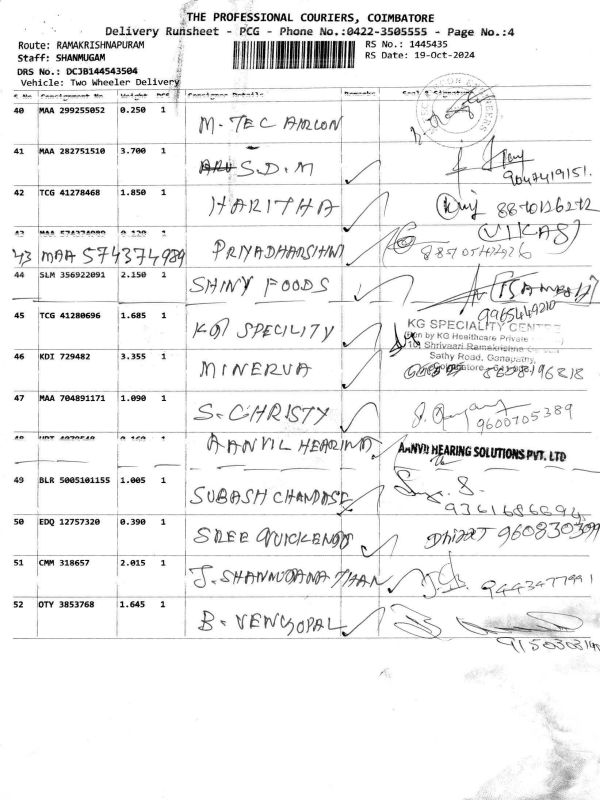 THE PROFESSIONAL COURIERS, COIMBATORE
Delivery Runsheet - PCG - Phone No.:0422-3505555 - Page No.:4
Route: RAMAKRISHNAPURAM RS No.: 1445435
Staff: SHANMUGAM RS Date: 19-Oct-2024
DRS No.: DCJB144543504
Vehicle: Two Wheeler Delivery
S.No Consignment No Weight PCS Consignee Details Remarks Seal & Signature
40 MAA 299255052 0.250 1 M-TEC
41 MAA 282751510 3.700 1 S.D.M
9047419151.
42 TCG 41278468 1.850 1 HARITHA 8870126272
43 MAA 574374989 0.120 1 (VIKAS)
43 MAA 574374989 PRIYADHARSHINI
44 SLM 356922091 2.150 1 SHINY FOODS
9965449210
45 TCG 41280696 1.685 1 KG SPECILITY KG SPECIALITY CENTRE
(Run by KG Healthcare Private
101 Shrivaari Ramakrishna
Sathy Road, Ganapathy,
46 KDI 729482 3.355 1 MINERVA 8608196818
47 MAA 704891171 1.090 1 S. CHRISTY
9600705389
48 1 AANVIL HEARING AANVII HEARING SOLUTIONS PVT. LTD
49 BLR 5005101155 1.005 1 SUBASH
50 EDQ 12757320 0.390 1 SREE
51 CMM 318657 2.015 1 J. SHANMUGANATHAN
9443477991
52 OTY 3853768 1.645 1 B. VENGOPAL